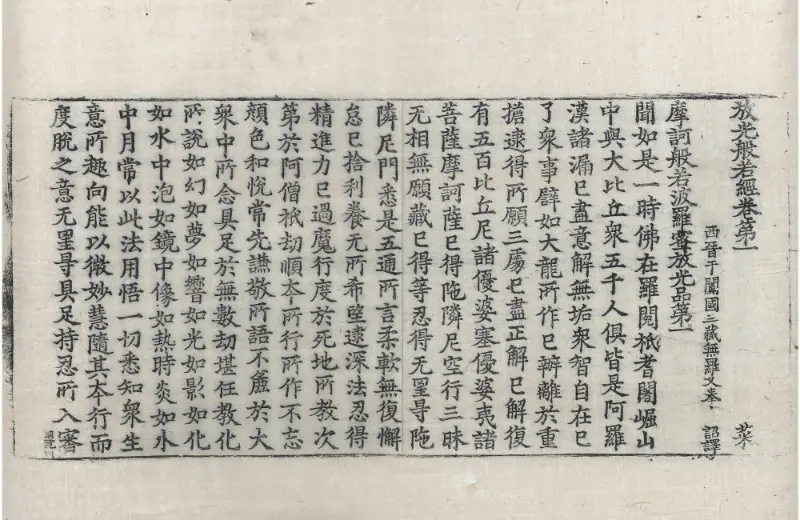 放光般若經卷第一
菜
西晉于闐國三藏無羅叉奉
詔譯
摩訶般若波羅蜜放光品第一
聞如是一時佛在羅閱祇耆闍崛山
中與大比丘衆五千人俱皆是阿羅
漢諸漏已盡意解無垢衆智自在已
了衆事譬如大龍所作已辦離於重
擔逮得所願三處已盡正解已解復
有五百比丘尼諸優婆塞優婆夷諸
菩薩摩訶薩已得陁隣尼空行三昧
无相無願藏已得等忍得无罣㝵陁
隣尼門悉是五通所言柔軟無復懈
怠已捨利養无所希望逮深法忍得
精進力已過魔行度於死地所教次
第於阿僧祇劫順夲所行所作不忘
顔色和悅常先謙敬所語不麁於大
衆中所念具足於無數劫堪任教化
所說如幻如夢如響如光如影如化
如水中泡如鏡中像如熱時炎如水
中月常以此法用悟一切悉知衆生
意所趣向能以微妙慧隨其夲行而
度脫之意无罣㝵具足持忍所入審